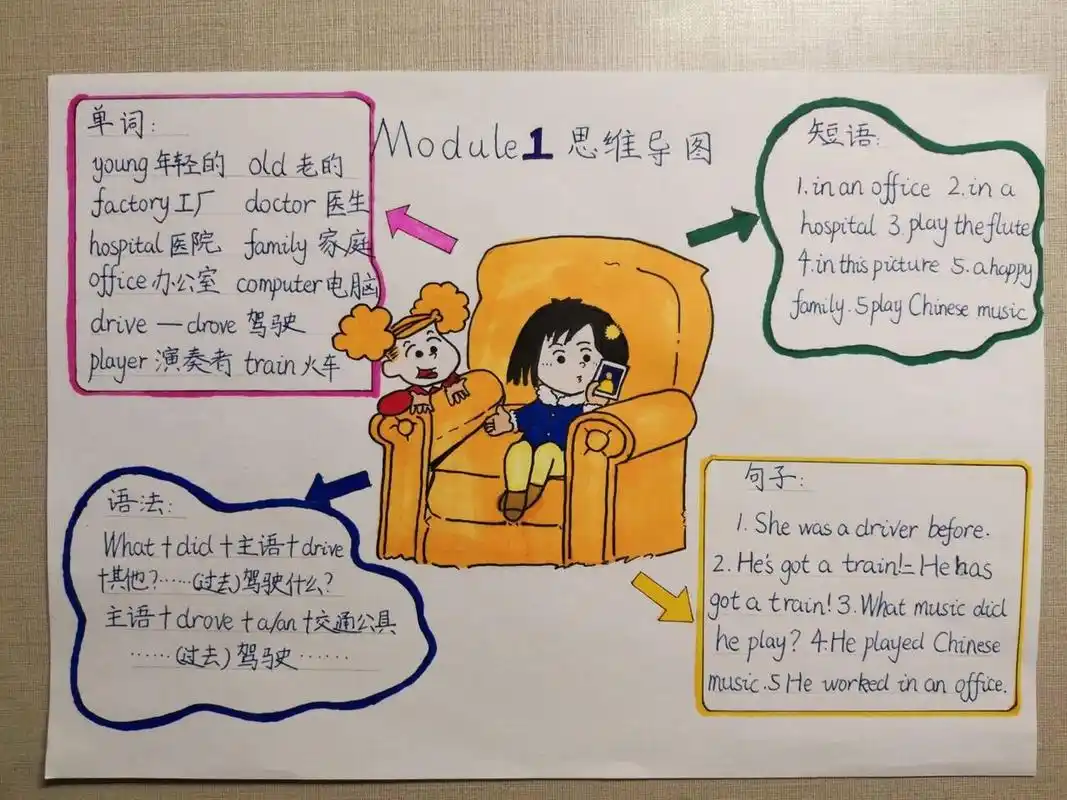 Module 1 思维导图
单词:
young 年轻的 old 老的
factory 工厂 doctor 医生
hospital 医院 family 家庭
office 办公室 computer 电脑
drive — drove 驾驶
player 演奏者 train 火车
短语:
1. in an office 2. in a
hospital 3. play the flute
4. in this picture 5. a happy
family. 5 play Chinese music
语法:
What + did + 主语 + drive
+其他?……(过去)驾驶什么?
主语 + drove + a/an +交通公具
……(过去)驾驶……
句子:
1. She was a driver before.
2. He's got a train!= He has
got a train! 3. What music did
he play? 4. He played Chinese
music. 5 He worked in an office.